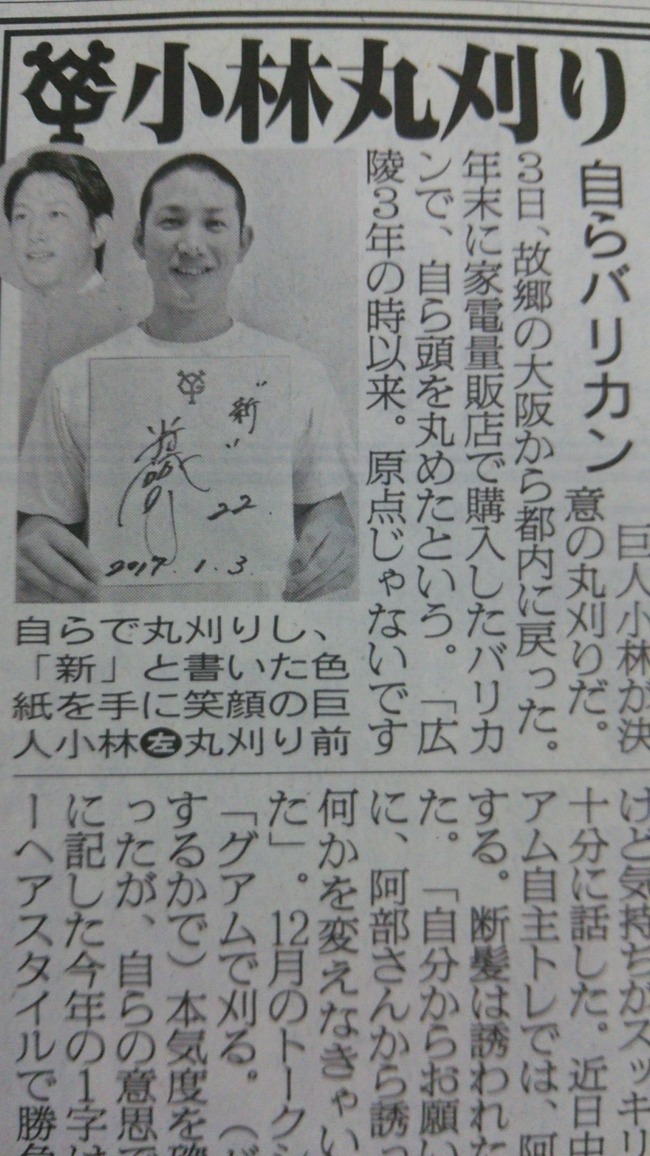 小林丸刈り
自らバリカン
巨人小林が決
意の丸刈りだ。
3日、故郷の大阪から都内に戻った。
年末に家電量販店で購入したバリカ
ンで、自ら頭を丸めたという。「広
陵3年の時以来。原点じゃないです
"新"
22.
2017.1.3.
自らで丸刈りし、
「新」と書いた色
紙を手に笑顔の巨
人小林左丸刈り前
けど気持ちがスッキリ
十分に話した。近日中
アム自主トレでは、阿
する。断髪は誘われた
た。「自分からお願い
に、阿部さんから誘っ
何かを変えなきゃい
た」。12月のトークシ
「グアムで刈る。(
するかで)本気度を
ったが、自らの意思で
に記した今年の1字は
ーヘアスタイルで勝